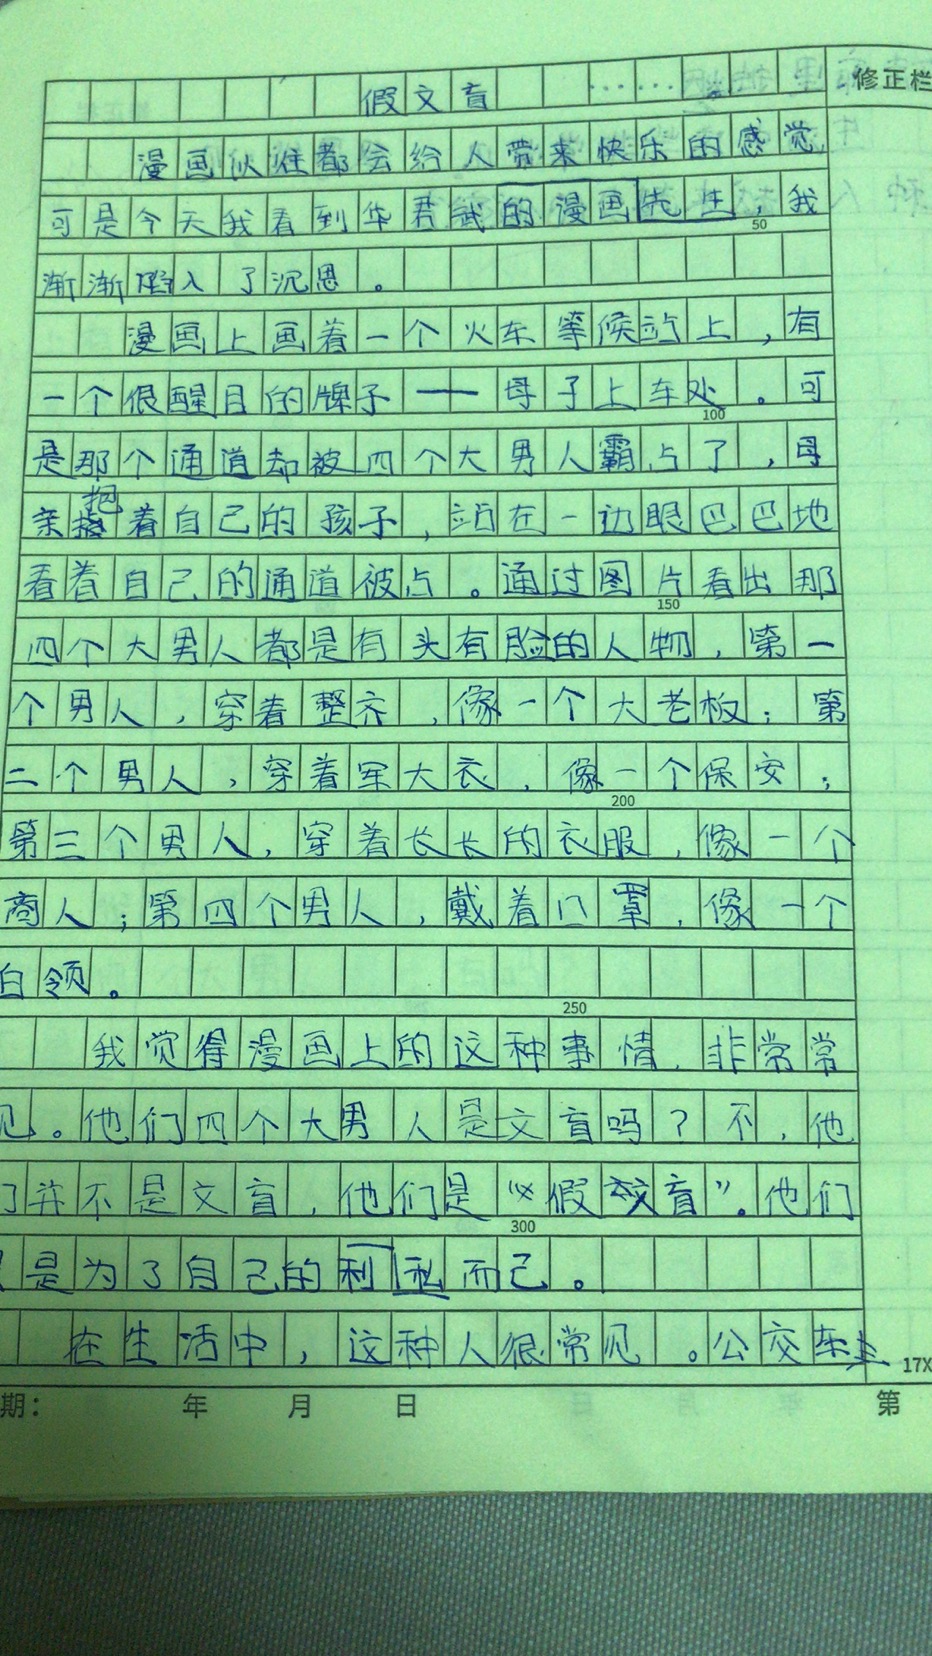 假文盲
修正栏
漫画以往都会给人带来快乐的感觉
可是今天我看到华君武的漫画先生,我
50
渐渐陷入了沉思。
漫画上画着一个火车等候站上,有
一个很醒目的牌子——母子上车处。可
100
是那个通道却被四个大男人霸占了,母
亲抱着自己的孩子,站在一边眼巴巴地
看着自己的通道被占。通过图片看出那
150
四个大男人都是有头有脸的人物,第一
个男人,穿着整齐,像一个大老板;第
二个男人,穿着军大衣,像一个保安;
200
第三个男人,穿着长长的衣服,像一个
商人;第四个男人,戴着口罩,像一个
白领。
250
我觉得漫画上的这种事情,非常常
见。他们四个大男人是文盲吗?不,他
们并不是文盲,他们是“假文盲”。他们
300
是为了自己的利私而己。
在生活中,这种人很常见。公交车上
17X
期: 年 月 日 第